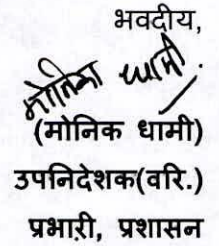 भवदीय,
मोनिक धामी
(मोनिक धामी)
उपनिदेशक(वरि.)
प्रभारी, प्रशासन